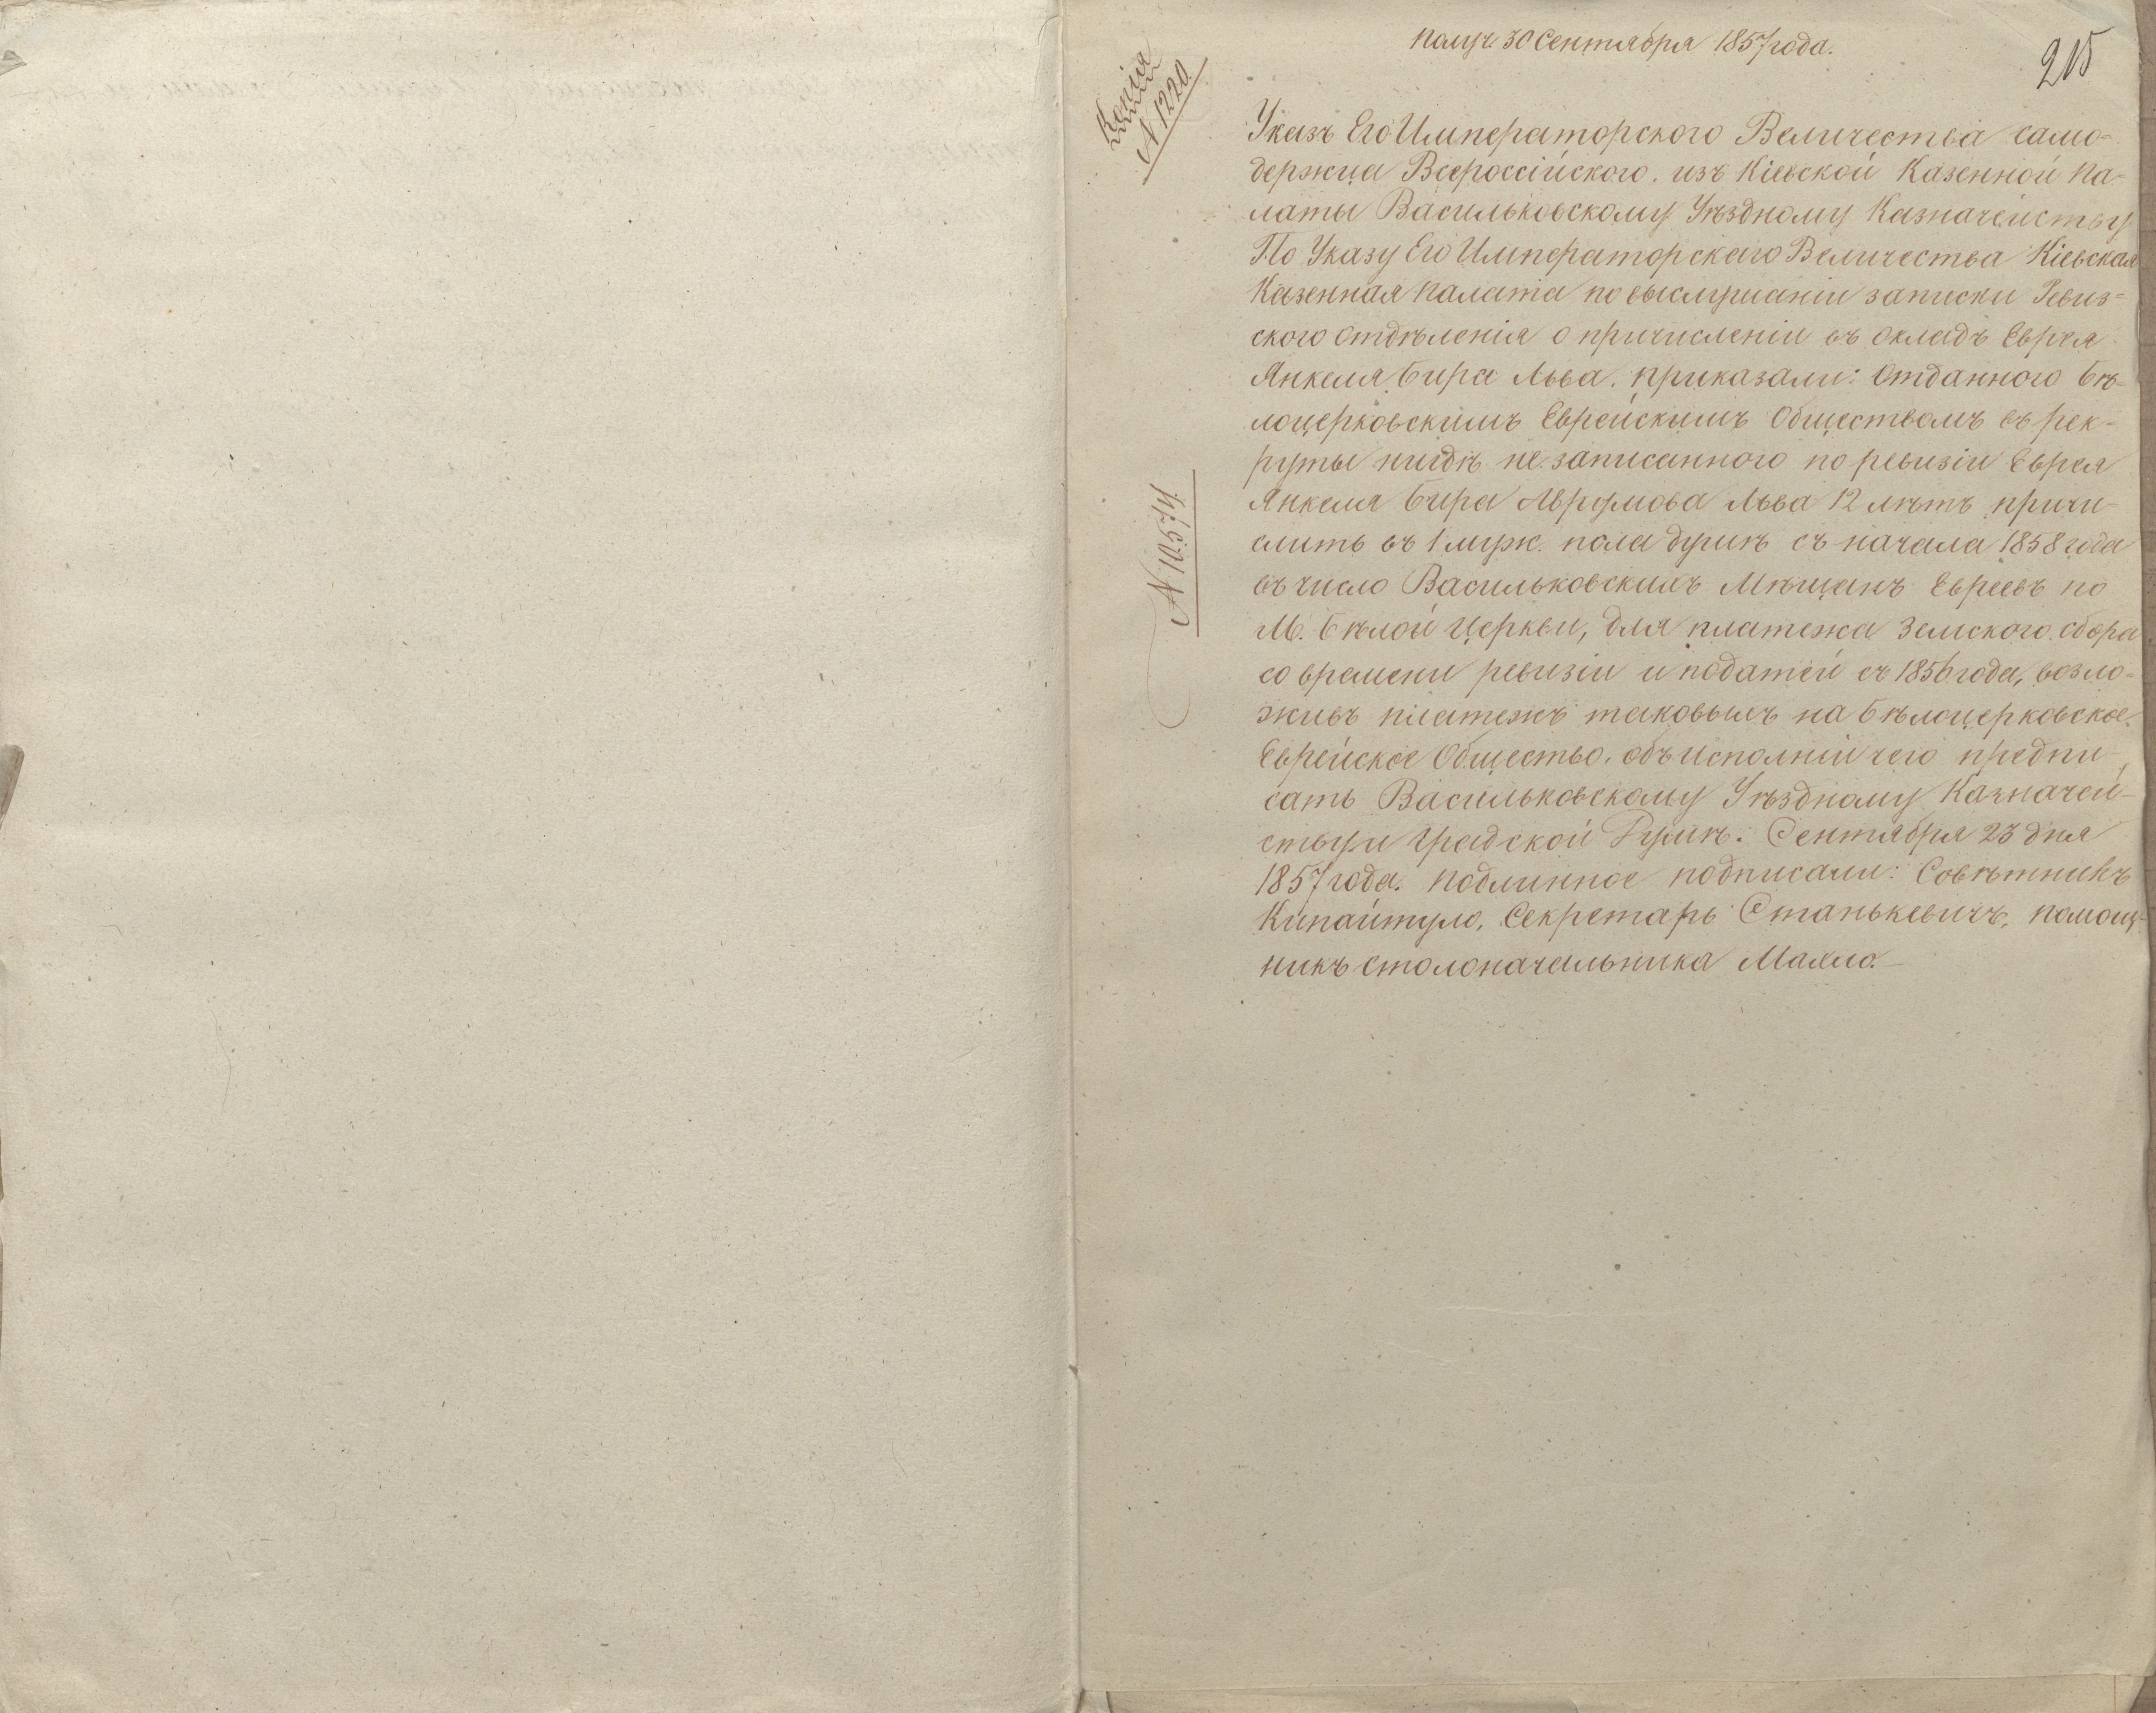 получ. 30 Сентября 1857 года.
215
Копія
N 1220
Указъ Его Императорского Величества само-
держца Всероссійского. изъ Кіевской Казенной Па-
латы Васильковскому Уѣздному Казначейству
По Указу Его Императорскаго Величества Кіевская
Казенная Палата по выслушаніи записки Ревиз-
ского Отдѣленія о причисленіи въ окладъ Еврея
Янкеля Бира Льва. приказали: Отданного Бѣ-
лоцерковскимъ Еврейскимъ Обществомъ въ рек-
руты нигдѣ не записанного по ревизіи Еврея
Янкеля Бира Аврумова Льва 12 лѣтъ причи-
N 10574
слить въ 1 муж. пола душѣ съ начала 1858 года
въ число Васильковскихъ Мѣщанъ Евреевъ по
М. Бѣлой Церкви, для платежа Земского сбора
со времени ревизіи и податей съ 1856 года, возло-
живъ платежъ таковыхъ на Бѣлоцерковское
Еврейское Общество. объ исполніи чего предпи-
сать Васильковскому Уѣздному Казначей-
ству и Градской Думѣ. Сентября 23 дня
1857 года. Подлинное подписали: Совѣтникъ
Секретарь Станькевичъ, помощ-
никъ столоначальника